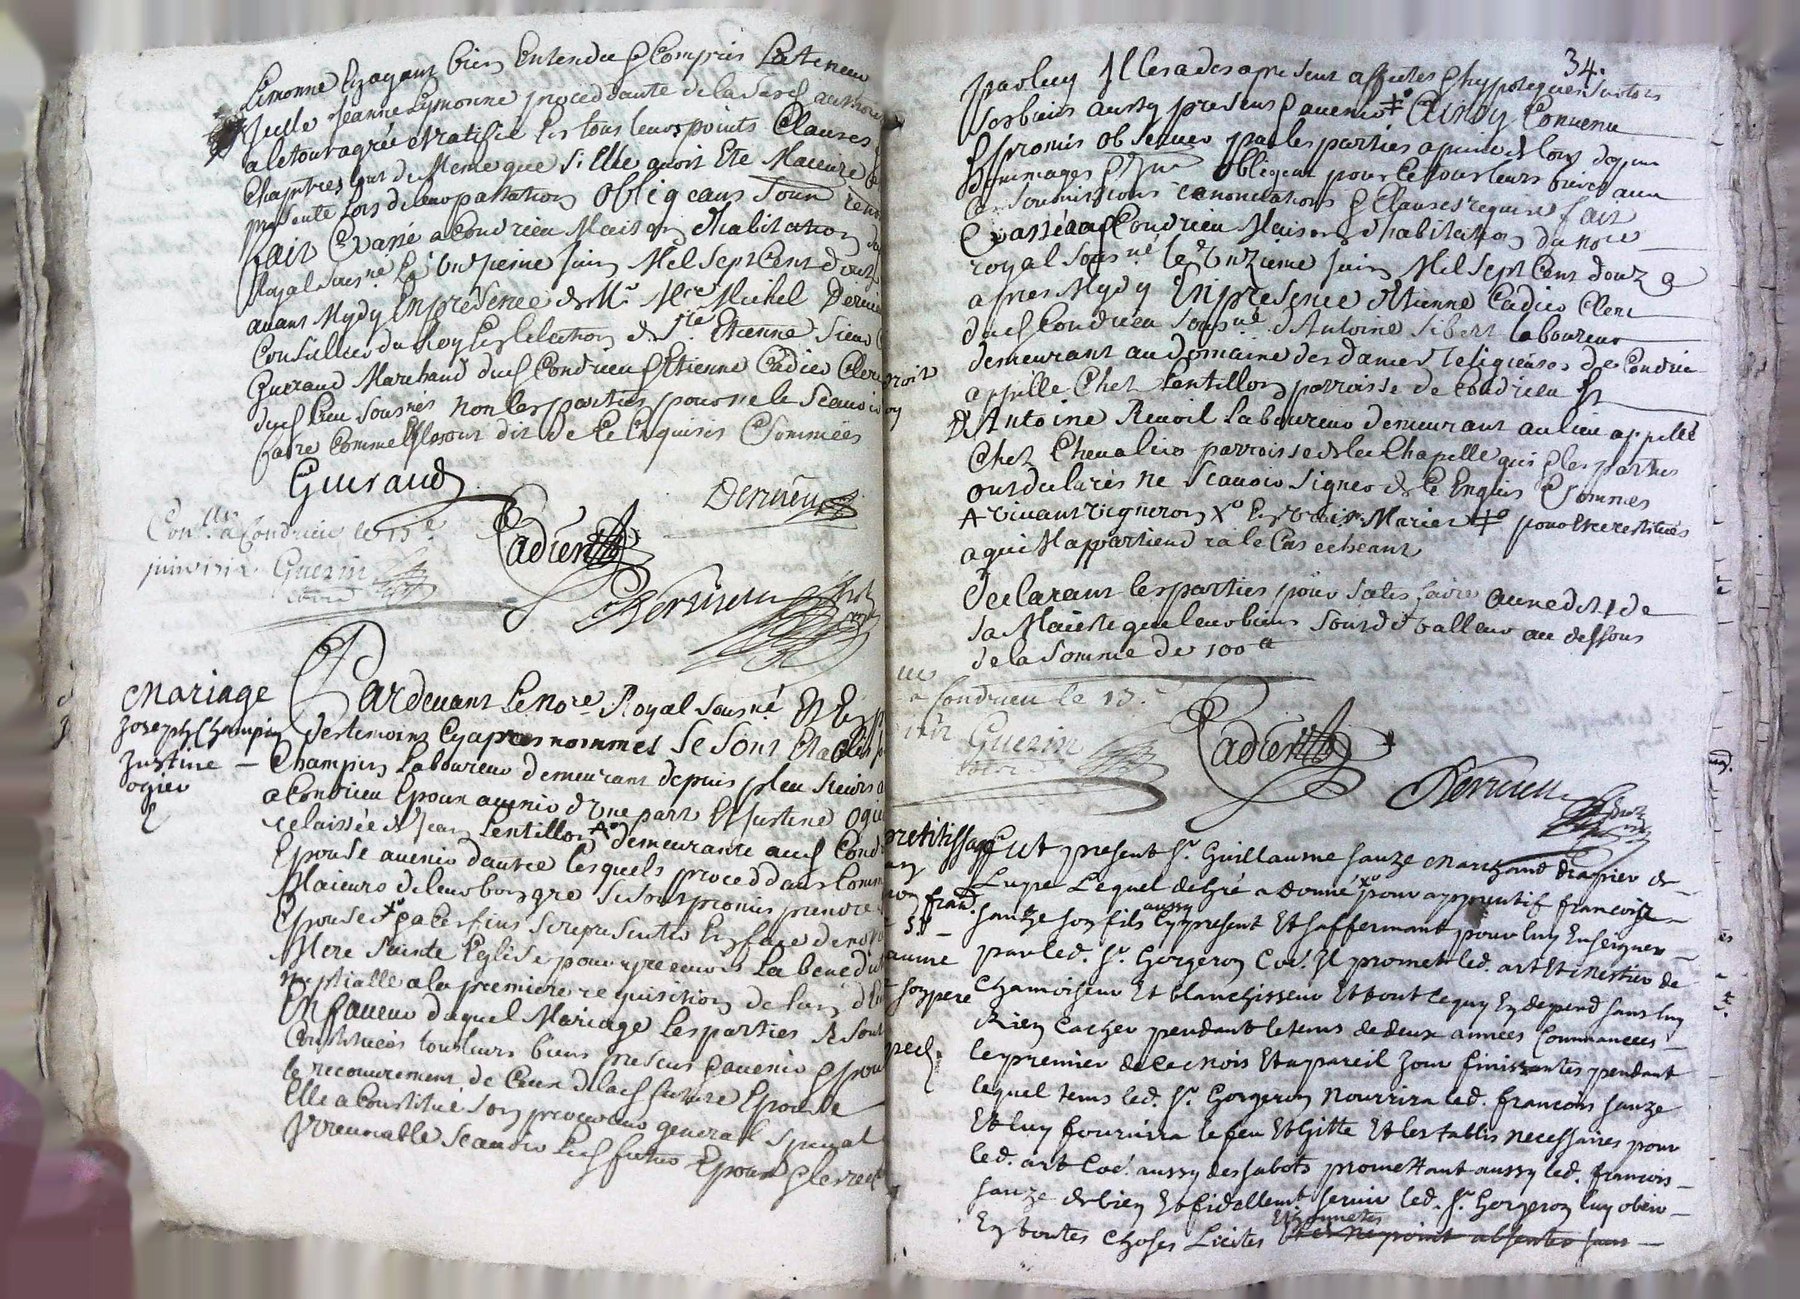 Limonne Lizayant bien Entendu & Compris La teneur
Icelle Jeanne Lymonne proceddante de la Susd authorité
a le tout agréé & ratifié En tous leurs points Clauses
Chapitres tout de Meme que Si Elle avoit Eté Maieure &
presente Lors de leur passation Obligeant Soum renon
fait & passé a Condrieu Maison d'habitation du
Royal Sousné Le Unzieme Juin Mil Sept Cent douze
avant Mydy En presence de Mr Mre Michel Dervieu
Conseiller du Roy En l'election de St Etienne Sieur
Gueraud Marchand dud Condrieu & Etienne Cadier Clerc
dud lieu Sousnés non les parties pour ne le Scavoir
faire Comme Elles ont dit de Ce Enquises & Sommées
Gueraud
Dervieu
Conllé a Condrieu le 13e
juin 1712 Guerin
Cadier
Dervieu
Mariage
Joseph Champin
Justine
ogier
Pardevant Le Nore Royal Sousné Et En p
des temoins Cy apres nommés Se Sont Etablis
Champin Laboureur demeurant depuis plusieurs
a Condrieu Epoux avenir d'Une part Et Justine Ogier
delaissée de Jean Lentillon Ao demeurante aud Cond
Epouse avenir d'autre Lesquels proceddant Comme
Maieurs de leur bon gré Se Sont promis prendre
Epouse Xo & a Ces fins Se representer En face de notre
Mere Sainte Eglise pour y recevoir La benedict
nuptialle a la premiere requisition de l'un d'Eux
En faveur duquel Mariage Les parties Se Sont
Constitués tous leurs biens presens & avenir & pour
le recouvrement de Ceux de lad future Epouse
Elle a Constitué Son procureur general & special
Irrevocable Scavoir Led futur Epoux & le rec
34.
par luy Il les a des a present affectés & hypotequés Sur tous
Ses biens aussy presens & avenir ‡o Ainsy Convenu
& promis Observer par les parties a peine de tous depens
dommages Obligeant pour Ce tous leurs biens aux
Soumissions renonciations & Clauses requises fait
& passé aud Condrieu Maison d'habitation du nore
royal Sousné le Unzieme Juin Mil Sept Cent douze
apres Mydy En presence d'Etienne Cadier Clerc
dud Condrieu Sousné d'Antoine Sibert laboureur
demeurant au domaine des dames Religieuses de Condrieu
appellé Chez Lentillon parroisse de Condrieu Et
d'Antoine Revoil Laboureur demeurant au lieu appellé
Chez Chevalier parroisse de la Chapelle qui & les parties
ont declarés ne Scavoir Signer de Ce Enquis & Sommés
A vivant vigneron Xo En vrays Mariés ‡o pour Etre restitués
a qui Il appartiendra le Cas echeant
Declarant les parties pour Satisfaire au nedit de
Sa Majesté que leurs biens Sont de Valleur au dessous
de la Somme de 500 tt
a Condrieu le 13e
Guerin
Cadier
Dervieu
pretitissage
fran.
Son pere
Fut present Sr. Guillaume Sauze Marchand drapier de
Lupe Lequel de Gré a donné Xo pour apprentif francois
Sauze Son fils aussy Cy present Et Saffermant pour luy Enseigner
par led. Sr. Gorgeron Coe. Il promet led. art Et Mestier de
Chamoiseur Et blanchisseur Et tout Ce quy En depend Sans luy
Rien Cacher pendant le tems de deux années Commancées
le premier de Ce mois Et a pareil Jour finissantes pendant
lequel tems led. Sr. Gorgeron Nourrira led. francois Sauze
Et luy fournira le feu Et Gitte Et les tablis necessaires pour
led. art Coe. aussy des Sabots promettant aussy led. francois
Sauze de bien Et fidellemt. Servir led. Sr. Gorgeron luy obeir
En toutes Choses Licites Et honnetes Et ne point absenter Sans